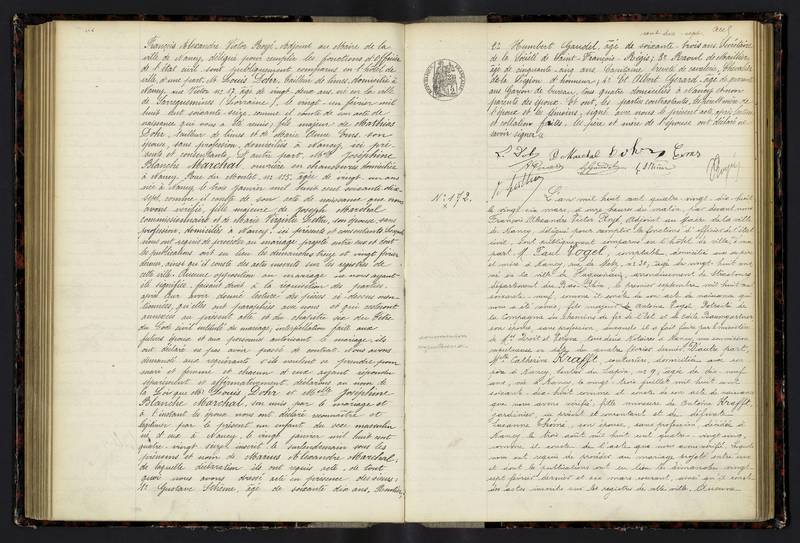 François Alexandre Victor Royé, Adjoint au Maire de la
ville de Nancy, délégué pour remplir les fonctions d'officier
de l'état civil, sont publiquement comparus en l'hôtel de
ville, d'une part, M. Louis Dohr, tailleur de limes, domicilié à
Nancy, rue Victor n° 17, âgé de vingt deux ans, né en la ville
de Sarreguemines (Lorraine), le vingt un février mil
huit cent soixante seize, comme il conste de son acte de
naissance qui nous a été remis; fils majeur de Matthias
Dohr, tailleur de limes et de Marie Anne Ems, son
épouse, sans profession, domiciliés à Nancy, ici pré-
sents et consentants. D'autre part, Mlle Joséphine
Blanche Marchal, ouvrière en chaussures, domiciliée
à Nancy, Rue du Montet, n° 115, âgée de vingt un ans
née à Nancy le trois janvier mil huit cent soixante dix
sept, comme il conste de son acte de naissance que nous
avons vérifié, fille majeure de Joseph Marchal
commissionnaire et de Marie Virginie son épouse, sans
profession, domiciliés à Nancy, ici présents et consentants. Lesquels
nous ont requis de procéder au mariage projeté entre eux et dont
les publications ont eu lieu les dimanches treize et vingt février
dernier, ainsi qu'il conste des actes inscrits sur les registres de
cette ville. Aucune opposition au mariage ne nous ayant
été signifiée, faisant droit à la réquisition des parties,
après leur avoir donné lecture des pièces ci dessus men-
tionnées, qu'elles ont paraphées avec nous et qui resteront
annexées au présent acte et du chapitre six du Titre
du Code civil intitulé du mariage, interpellation faite aux
futurs époux et aux personnes autorisant le mariage, ils
ont déclaré ne pas avoir passé de contrat. Nous avons
demandé aux requérants s'ils veulent se prendre pour
mari et femme et chacun d'eux ayant répondu
séparément et affirmativement, déclarons au nom de
la Loi que M. Louis Dohr et Mlle Joséphine
Blanche Marchal, sont unis par le mariage et
à l'instant les époux nous ont déclaré reconnaître et
légitimer par le présent un enfant du sexe masculin
né d'eux à Nancy, le vingt janvier mil huit cent
quatre vingt seize, inscrit le surlendemain sous les
prénoms et nom de Marius Alexandre Marchal;
de laquelle déclaration ils ont requis acte, de tout
quoi nous avons dressé acte en présence des sieurs:
1° Gustave âgé de soixante dix ans, Rentier;
2° Humbert Gandel, âgé de soixante trois ans, Secrétaire
de la Société de Saint François Régis; 3° Raoul de
âgé de cinquante ans, Capitaine retraité de cavalerie, Chevalier
de la Légion d'honneur; 4° et Albert Gérard, âgé de quarante
ans, Garçon de bureau, tous quatre domiciliés à Nancy et non
parents des époux. Et ont, les parties contractantes, les père et mère de
l'époux et les témoins, signé avec nous le présent acte, après lecture
et collation faites. Les père et mère de l'épouse ont déclaré ne
savoir signer.
L. Dohr B. Marchal Dohr Ems
Royé
N° 172.
L'an mil huit cent quatre vingt dix huit
le vingt six mars, à onze heures du matin, par devant nous
François Alexandre Victor Royé, Adjoint au Maire de la ville
de Nancy, délégué pour remplir les fonctions d'officier de l'état
civil, sont publiquement comparus en l'hôtel de ville, d'une
part, M. Paul Vogel, comptable, domicilié
à Nancy, rue de Metz, n° 31, âgé de vingt huit ans
né en la ville de Haguenau, arrondissement de Strasbourg
département du Bas-Rhin, le premier septembre mil huit cent
soixante neuf, comme il conste de son acte de naissance qui
nous a été remis, fils majeur de Antoine Vogel, Retraité de
la Compagnie du chemin de fer de l'Est et de Odile Baumgartner
son épouse, sans profession,
tous deux Notaires à Nancy,
février dernier. D'autre part,
Mlle Catherine Krafft, couturière, domiciliée avec son
père à Nancy, n° 9, âgée de dix neuf
ans, née à Nancy, le vingt trois juillet mil huit cent
soixante dix huit comme il conste de son acte de naissance
que nous avons vérifié, fille mineure de Antoine Krafft,
jardinier, ici présent et consentant et de défunte
Suzanne Thômé, son épouse, sans profession, décédée à
Nancy le trois août mil huit cent quatre vingt
comme il conste de l'acte que nous avons vérifié. Lesquels
nous ont requis de procéder au mariage projeté entre eux
et dont les publications ont eu lieu les dimanches vingt
sept février dernier et six mars courant, ainsi qu'il conste
des actes inscrits sur les registres de cette ville. Aucune